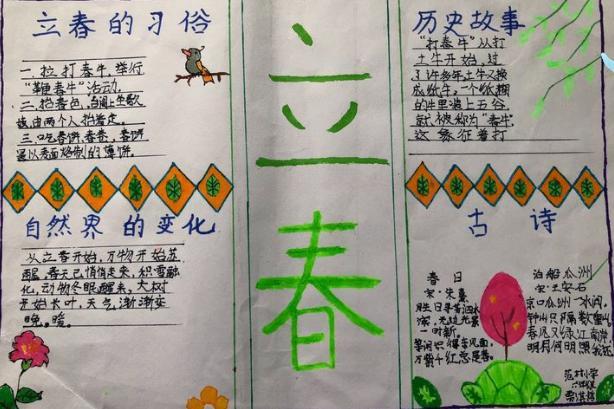 立春的习俗
一.拉打春牛,举行
"鞭春牛"活动.
二.抬春色,
该由两个人抬着走.
三.吃春饼春卷,春饼
是以麦面烙制的薄饼.
自然界的变化
从立春开始,万物开始苏
醒,春天已悄悄走来,积雪融
化,动物冬眠醒来,大树
开始长叶,天气渐渐变
立
春
历史故事
"打春牛"从打
土牛开始,过
了许多年土牛又换
成纸牛,一个纸糊
的牛里装上五谷
就被称为"春牛"
这象征着打
古诗
春日
宋·朱熹
胜日寻芳泗水
滨,无边光景
一时新,
等闲识得春风面,
万紫千红总是春.
泊船瓜洲
宋·王安石
京口瓜洲一水间
钟山只隔数重山
春风又绿江南岸
明月何时照我还
范村小学